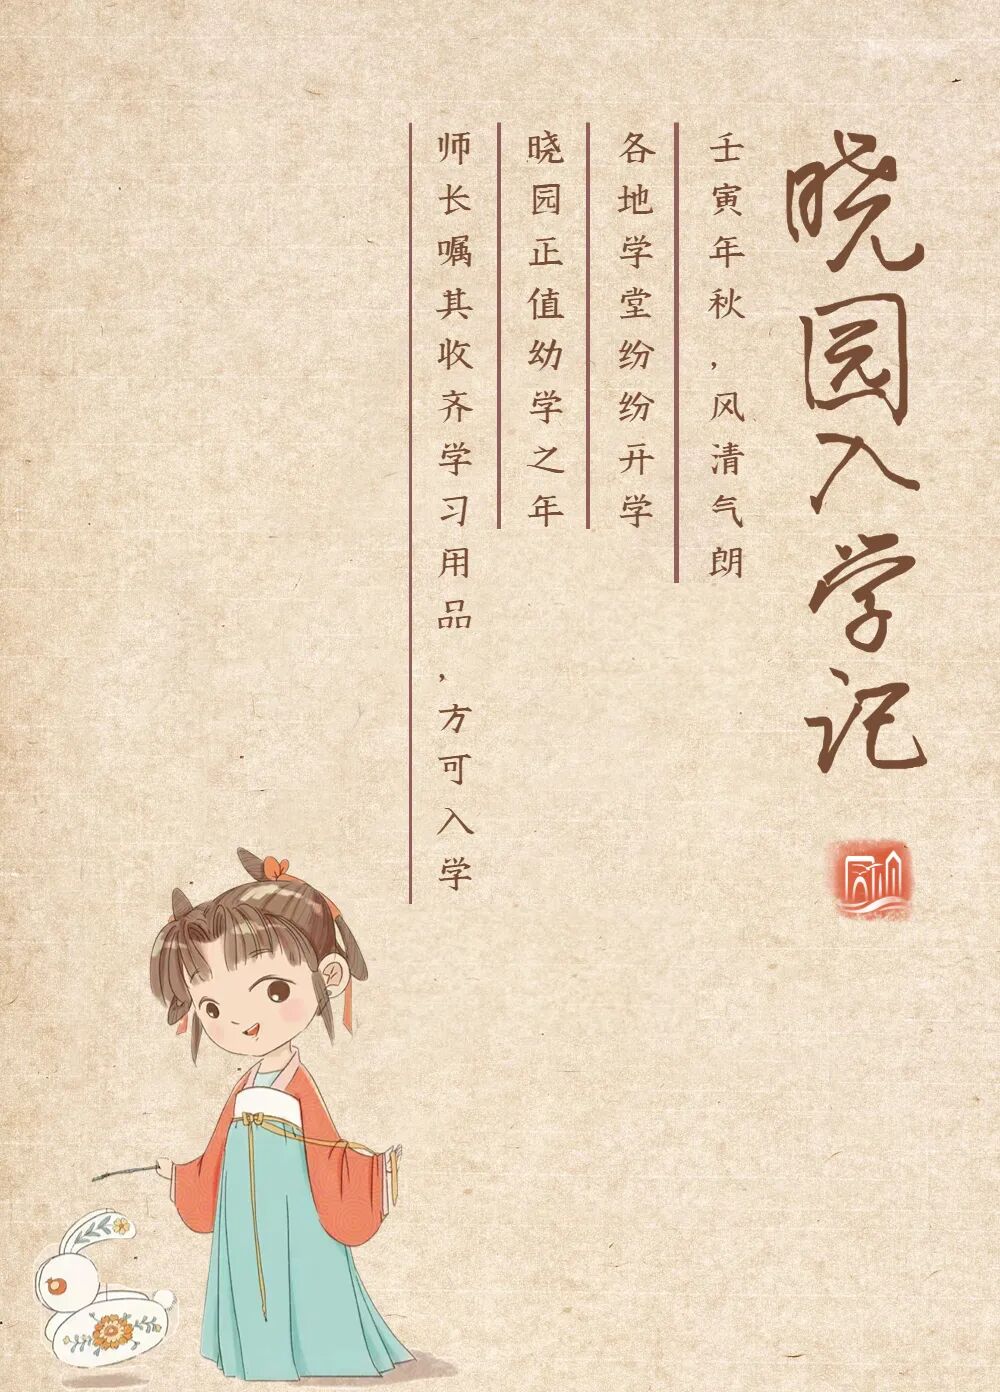 晓园入学记
壬寅年秋，风清气朗
各地学堂纷纷开学
晓园正值幼学之年
师长嘱其收齐学习用品，方可入学